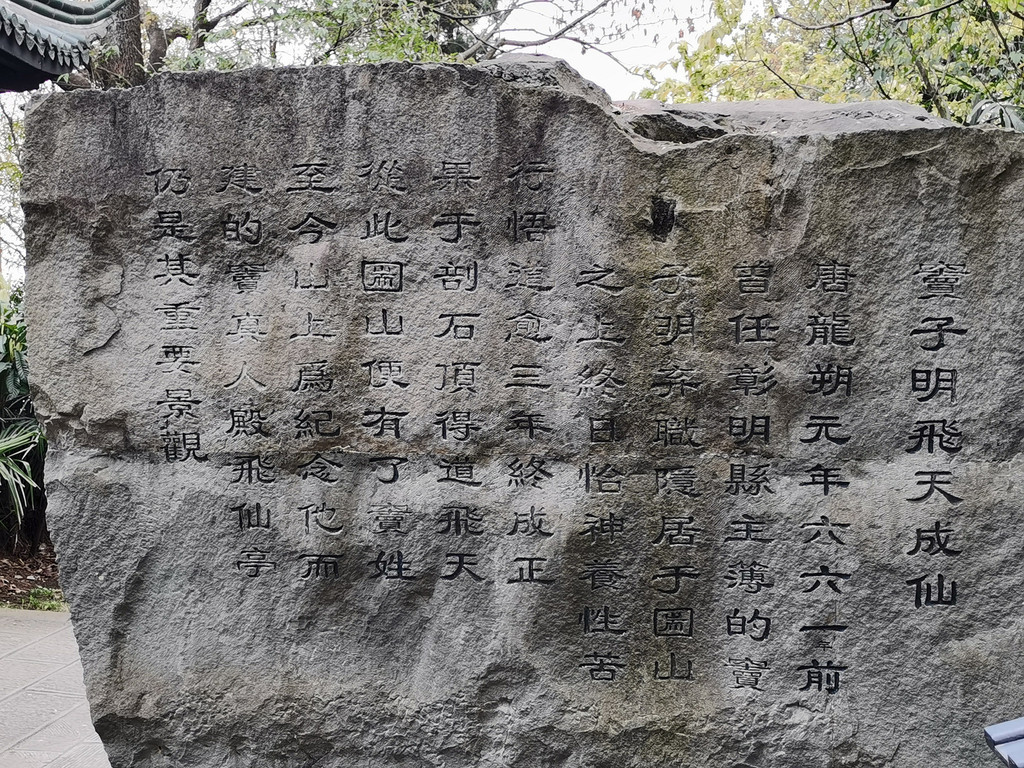 竇子明飛天成仙
唐龍朔元年六六一年前
曾任彰明縣主薄的竇
子明弃職隱居于圌山
之上終日怡神養性苦
行悟道愈三年終成正
果于剖石頂得道飛天
從此圌山便有了竇姓
至今山上爲紀念他而
建的竇真人殿飛仙亭
仍是其重要景觀